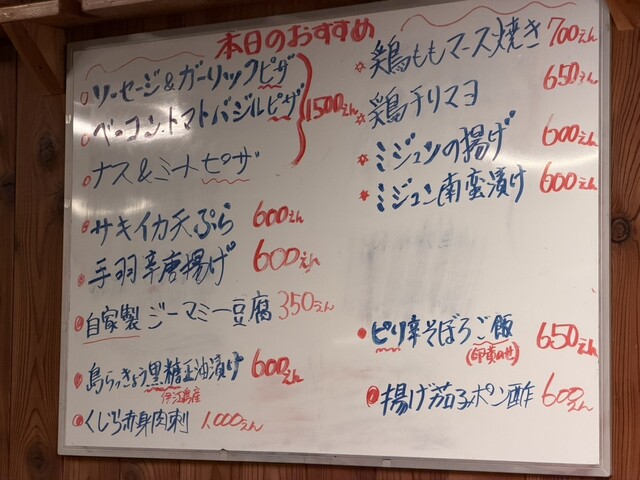 本日のおすすめ
ソーセージ&ガーリックピザ
ベーコントマトバジルピザ
1500えん
ナス&ミートピザ
サキイカ天ぷら 600えん
手羽辛唐揚げ 600えん
自家製 ジーマミー豆腐 350えん
島らっきょう黒糖正油漬け 600えん
伊江島産
くじら赤身肉刺 1,000えん
鶏ももマース焼き 700えん
鶏チリマヨ 650えん
ミジュンの揚げ 600えん
ミジュン南蛮漬け 600えん
ピリ辛そぼろご飯 650えん
(卵黄のせ)
揚げ茄子ポン酢 600えん